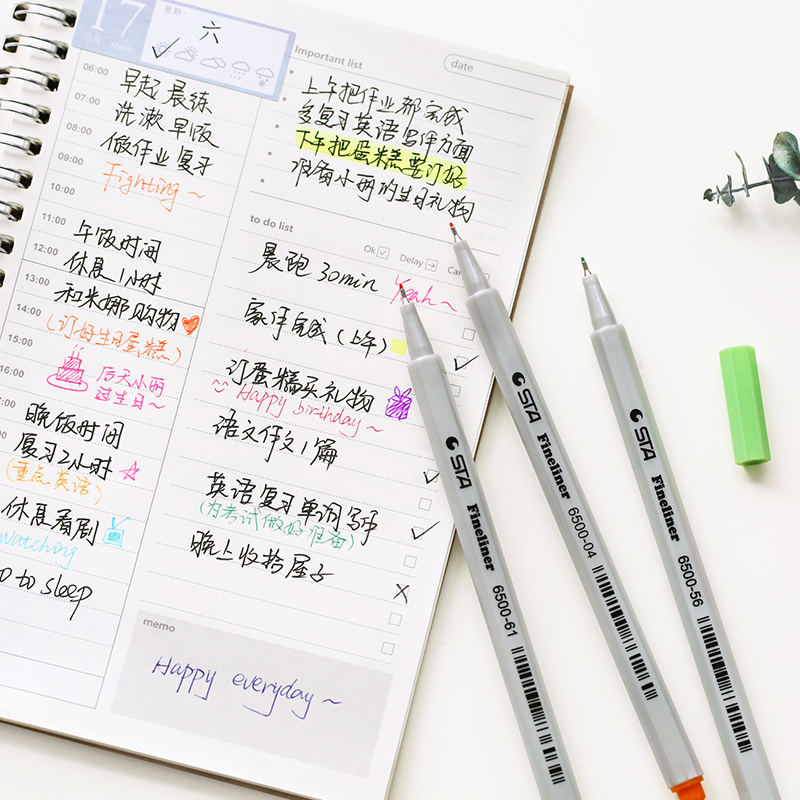 17
星期:
六
06:00
早起 晨练
07:00
洗漱 早饭
08:00
做作业 复习
09:00
Fighting ~
10:00
11:00
午饭时间
12:00
休息1小时
13:00
和米娜购物
14:00
(订好生日蛋糕)
15:00
后天小丽
16:00
过生日~
17:00
晚饭时间
复习2小时
(重点英语)
休息看剧
Watching
to sleep
Important list
date
上午把作业都完成
多复习英语写作方面
下午把蛋糕要订好
准备小丽的生日礼物
to do list
Ok
Delay
晨跑 30min
Yeah~
家作完成(上午)
订蛋糕买礼物
Happy birthday~
语文作文1篇
英语复习单词写作
(为考试做好准备)
晚上收拾屋子
memo
Happy everyday ~
STA Fineliner 6500-61
STA Fineliner 6500-04
STA Fineliner 6500-56